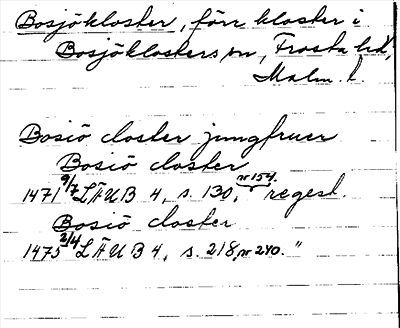 Bosjökloster, förr kloster i
Bosjöklosters sn, Frosta hd,
Malm. l.
Bosiö closter jungfruer
Bosiö closter
1471 9/7 LÄUB 4, s. 130, nr 154. regest.
Bosiö closter
1475 2/4 LÄUB 4, s. 218, nr 240. "